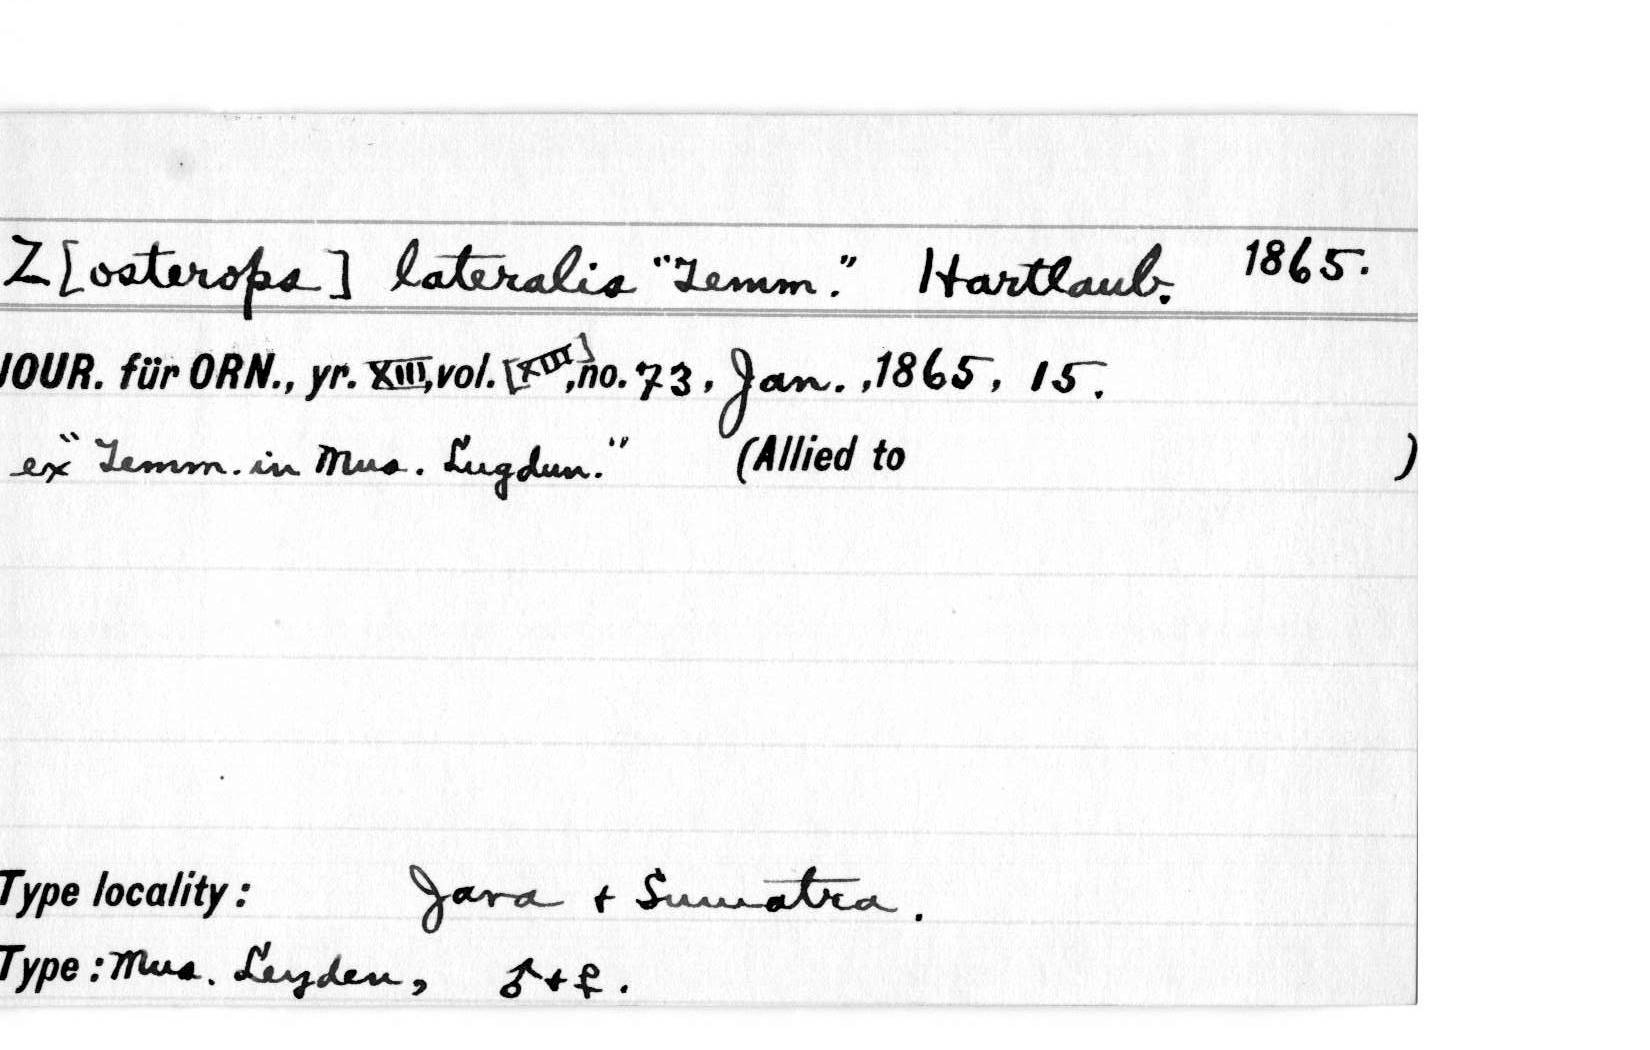 Z[osterops] lateralis "Temm." Hartlaub. 1865.
JOUR. für ORN., yr. XIII, vol. [XIII], no. 73, Jan., 1865, 15.
ex "Temm. in Mus. Lugdun." (Allied to )
Type locality: Java + Sumatra.
Type: Mus. Leyden, ♂+♀.